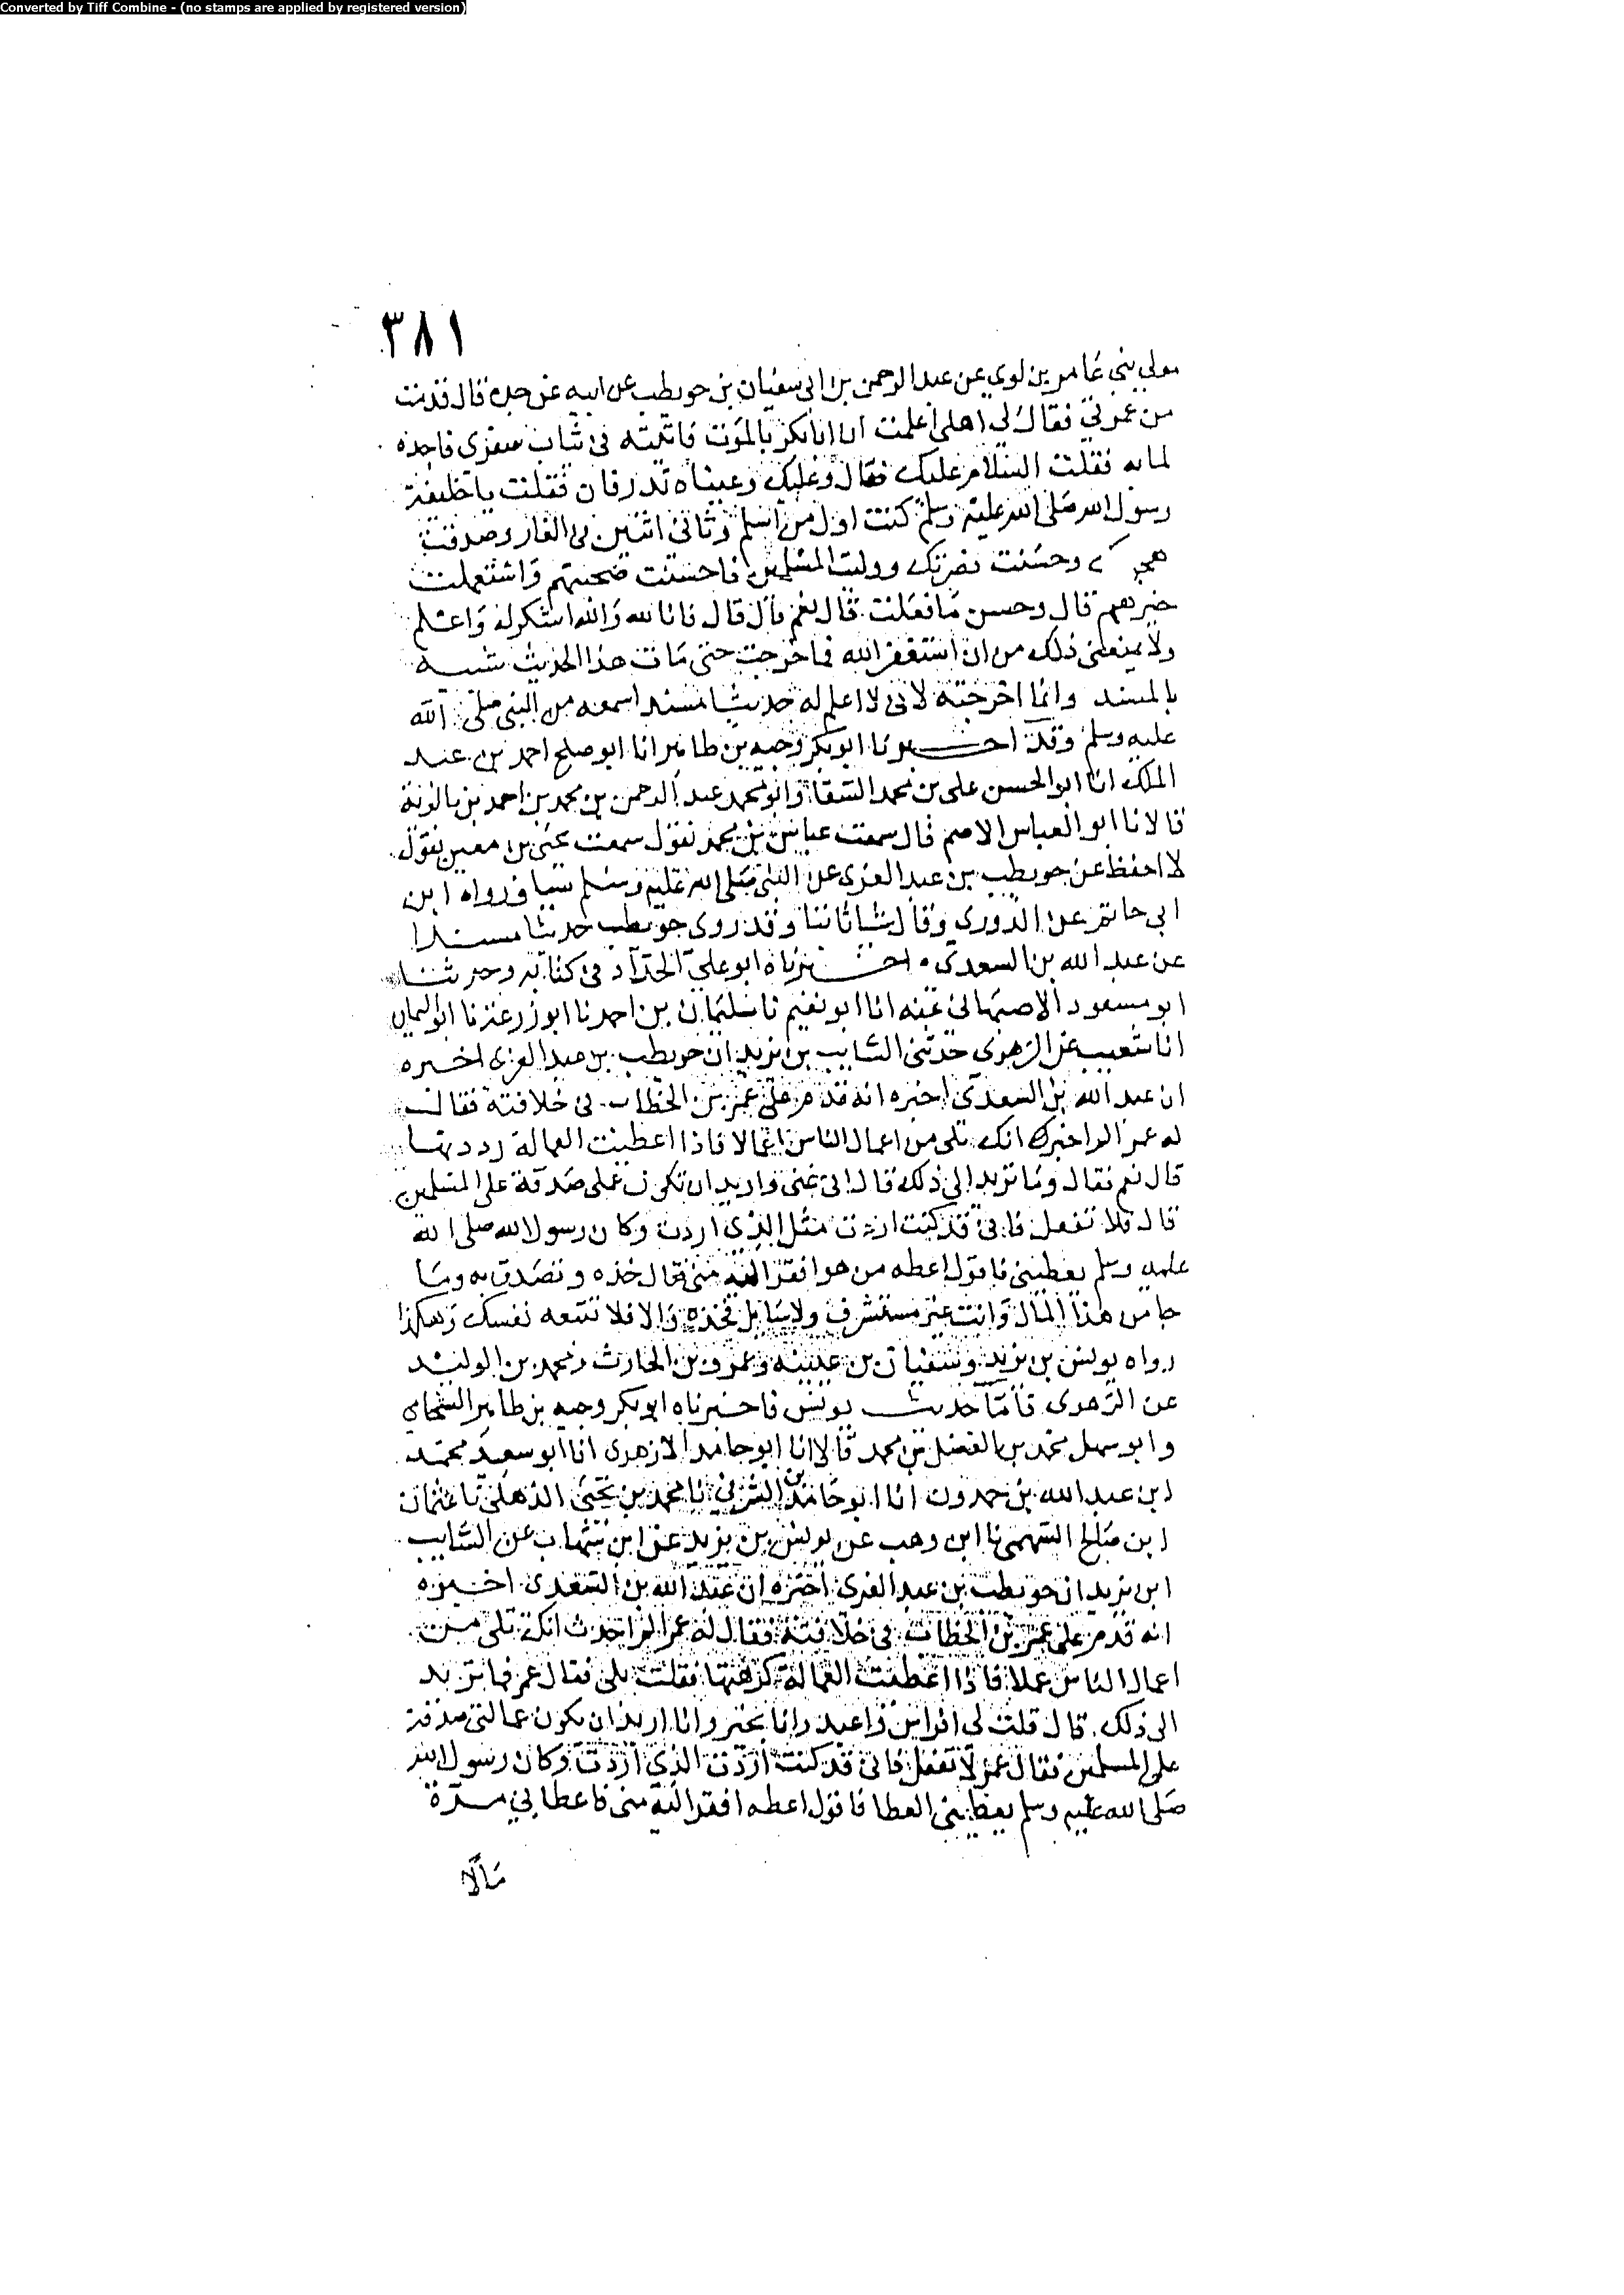 Converted by Tiff Combine - (no stamps are applied by registered version)
٣٨١
مولى بني عامر بن لوي عن عبد الرحمن بن ابي سفيان بن حويطب عن ابيه عن جده قال قدمت
من عمرتي فقال لي اهلي اعلمت ان ابا بكر بالموت فاتيته في ثياب سفري فاجده
لمابه فقلت السلام عليك فقال وعليك وعيناه تذرفان فقلت يا خليفة
رسول الله صلى الله عليه وسلم كنت اول من اسلم وثاني اثنين في الغار وصدقت
وحسنت نصرتك ووليت المسلمين فاحسنت صحبتهم واستعملت
خيرهم قال وحسن ما فعلت قال نعم قال فانا لله والله اشكر له واعلم
ولا يمنعني ذلك من ان استغفر الله فما خرجت حتى مات هذا الحديث شبه
بالمسند وانما اخرجته لاني لا اعلم له حديثا مسندا سمعه من النبي صلى الله
عليه وسلم وقد اخبرنا ابو بكر وجيه بن طاهر انا ابو صلح احمد بن عبد
الملك انا ابو الحسن علي بن محمد السقا وابو محمد عبد الرحمن بن محمد بن احمد بن بالويه
قالا نا ابو العباس الاصم قال سمعت عباس بن محمد يقول سمعت يحيى بن معين يقول
لا احفظ عن حويطب بن عبد العزى عن النبي صلى الله عليه وسلم شيا ورواه ابن
ابي حاتم عن الدوري وقال شيا ثابتا وقد روى حويطب حديثا مسندا
عن عبد الله بن السعدي اخبرناه ابو علي الحداد في كتابه وحدثنا
ابو مسعود الاصبهاني عنه انا ابو نعيم نا سليمان بن احمد نا ابو زرعة نا ابو اليمان
انا شعيب عن الزهري حدثني السايب بن يزيد ان حويطب بن عبد العزى اخبره
ان عبد الله بن السعدي اخبره انه قدم على عمر بن الخطاب في خلافته فقال
له عمر الم اخبرك انك تلي من اعمال الناس اعمالا فاذا اعطيت العمالة رددتها
قال نعم فقال وما تريد الى ذلك قال اني غني واريد ان تكون عملي صدقة على المسلمين
قال فلا تفعل فاني قد كنت اردت مثل الذي اردت وكان رسول الله صلى الله
عليه وسلم يعطيني فاقول اعطه من هو افقر اليه مني فقال خذه وتصدق به وما
جا من هذا المال وانت غير مستشرف ولا سايل فخذه والا فلا تتبعه نفسك وهكذا
رواه يونس بن يزيد وسفيان بن عيينة وعمرو بن الحارث ومحمد بن الوليد
عن الزهري فاما حديث يونس فاخبرناه ابو بكر وجيه بن طاهر الشحامي
وابو سهل محمد بن الفضل بن محمد قالا انا ابو حامد الازهري انا ابو سعيد محمد
ابن عبد الله بن حمدون انا ابو حامد بن الشرقي نا محمد بن يحيى الذهلي نا عثمان
ابن صالح السهمي نا ابن وهب عن يونس بن يزيد عن ابن شهاب عن السايب
ابن يزيد ان حويطب بن عبد العزى اخبره ان عبد الله بن السعدي اخبره
انه قدم على عمر بن الخطاب في خلافته فقال له عمر الم احدث انك تلي من
اعمال الناس عملا فاذا اعطيت العمالة كرهتها فقلت بلى فقال عمر فما تريد
الى ذلك قال قلت لي افراس واعبد وانا بخير وانا اريد ان يكون عمالتي صدقة
على المسلمين فقال عمر لا تفعل فاني قد كنت اردت الذي اردت وكان رسول الله
صلى الله عليه وسلم يعطيني العطا فاقول اعطه افقر اليه مني فاعطاني مرة
مالا